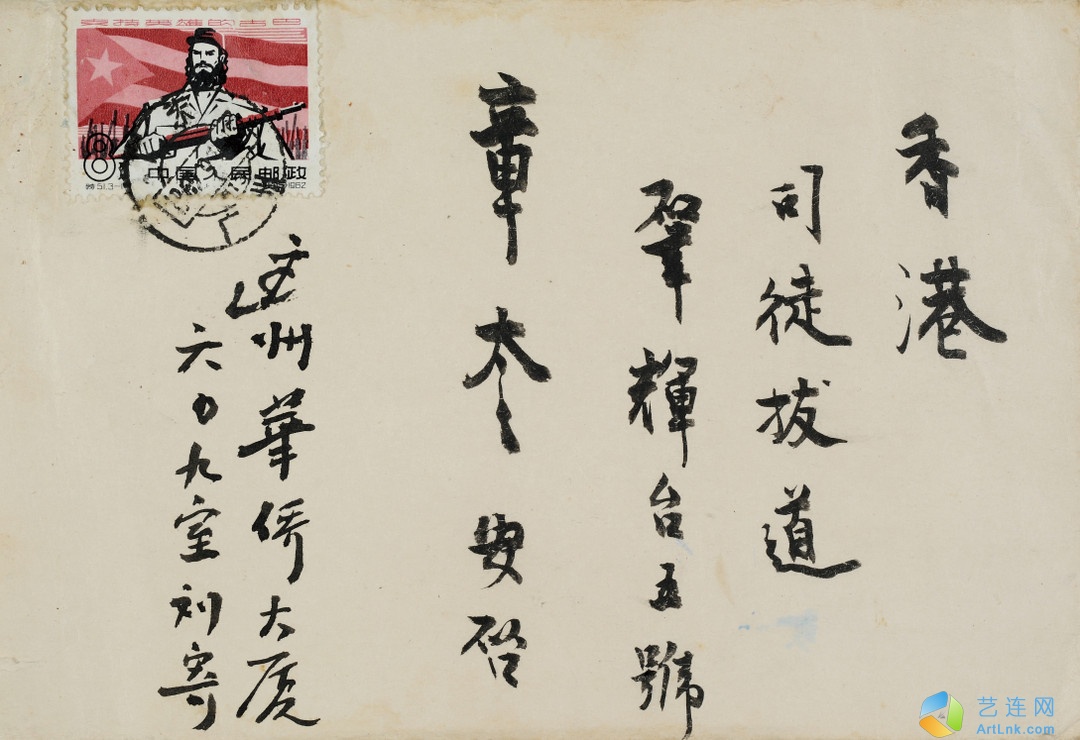 香港
司徒拔道
肇輝台五號
章太〻安啓
廣州華侨大厦
六〇九室刘寄
支援英雄的古巴
8分
中国人民邮政
特51.3-1
1962
艺连网
ArtLnk.com